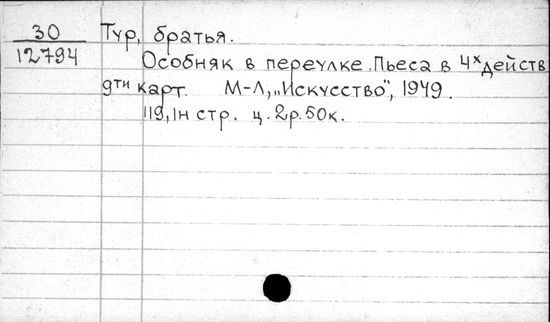 30
12794
Тур, братья.
Особняк в переулке. Пьеса в 4х действ
9ти карт. М-Л, „Искусство", 1949.
119, 1н стр. ц. 2р. 50к.